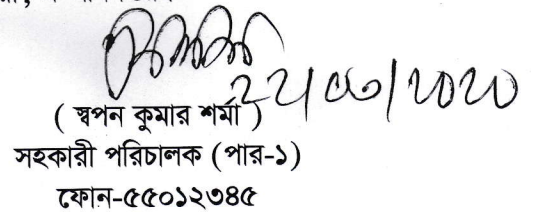 ২২/০৩/২০২০
( স্বপন কুমার শর্মা )
সহকারী পরিচালক (পার-১)
ফোন-৫৫০১২৩৪৫